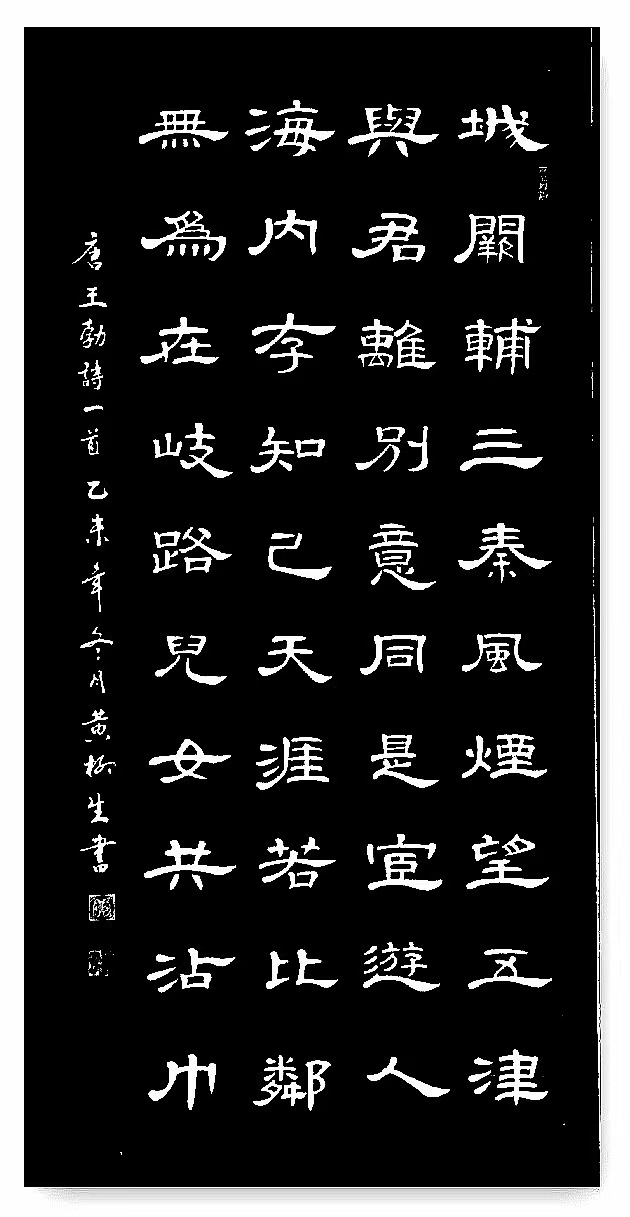 城闕輔三秦風煙望五津
與君離別意同是宦遊人
海内存知己天涯若比鄰
無爲在岐路兒女共沾巾
唐王勃詩一首乙未年冬月黄樹生書